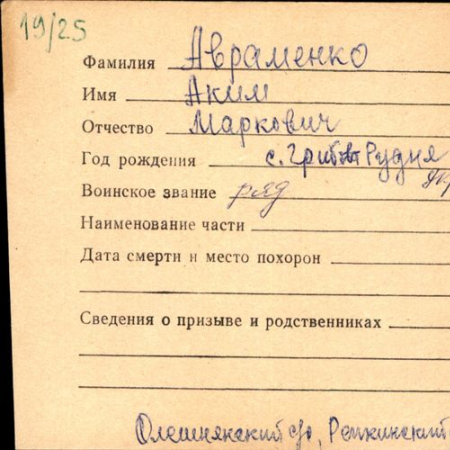 19/25
Фамилия Авраменко
Имя Аким
Отчество Маркович
Год рождения с. Грибова Рудня
Воинское звание ряд
Наименование части
Дата смерти и место похорон
Сведения о призыве и родственниках
Олешнякский с/с, Репкинский